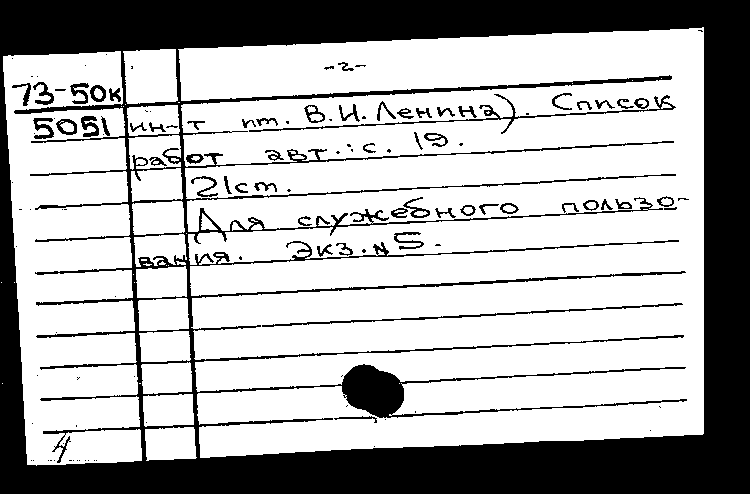 -2-
73-50к
5051 ин-т им. В.И. Ленина). Список
работ авт.: с. 19.
21см.
Для служебного пользо-
вания. Экз. № 5.
4